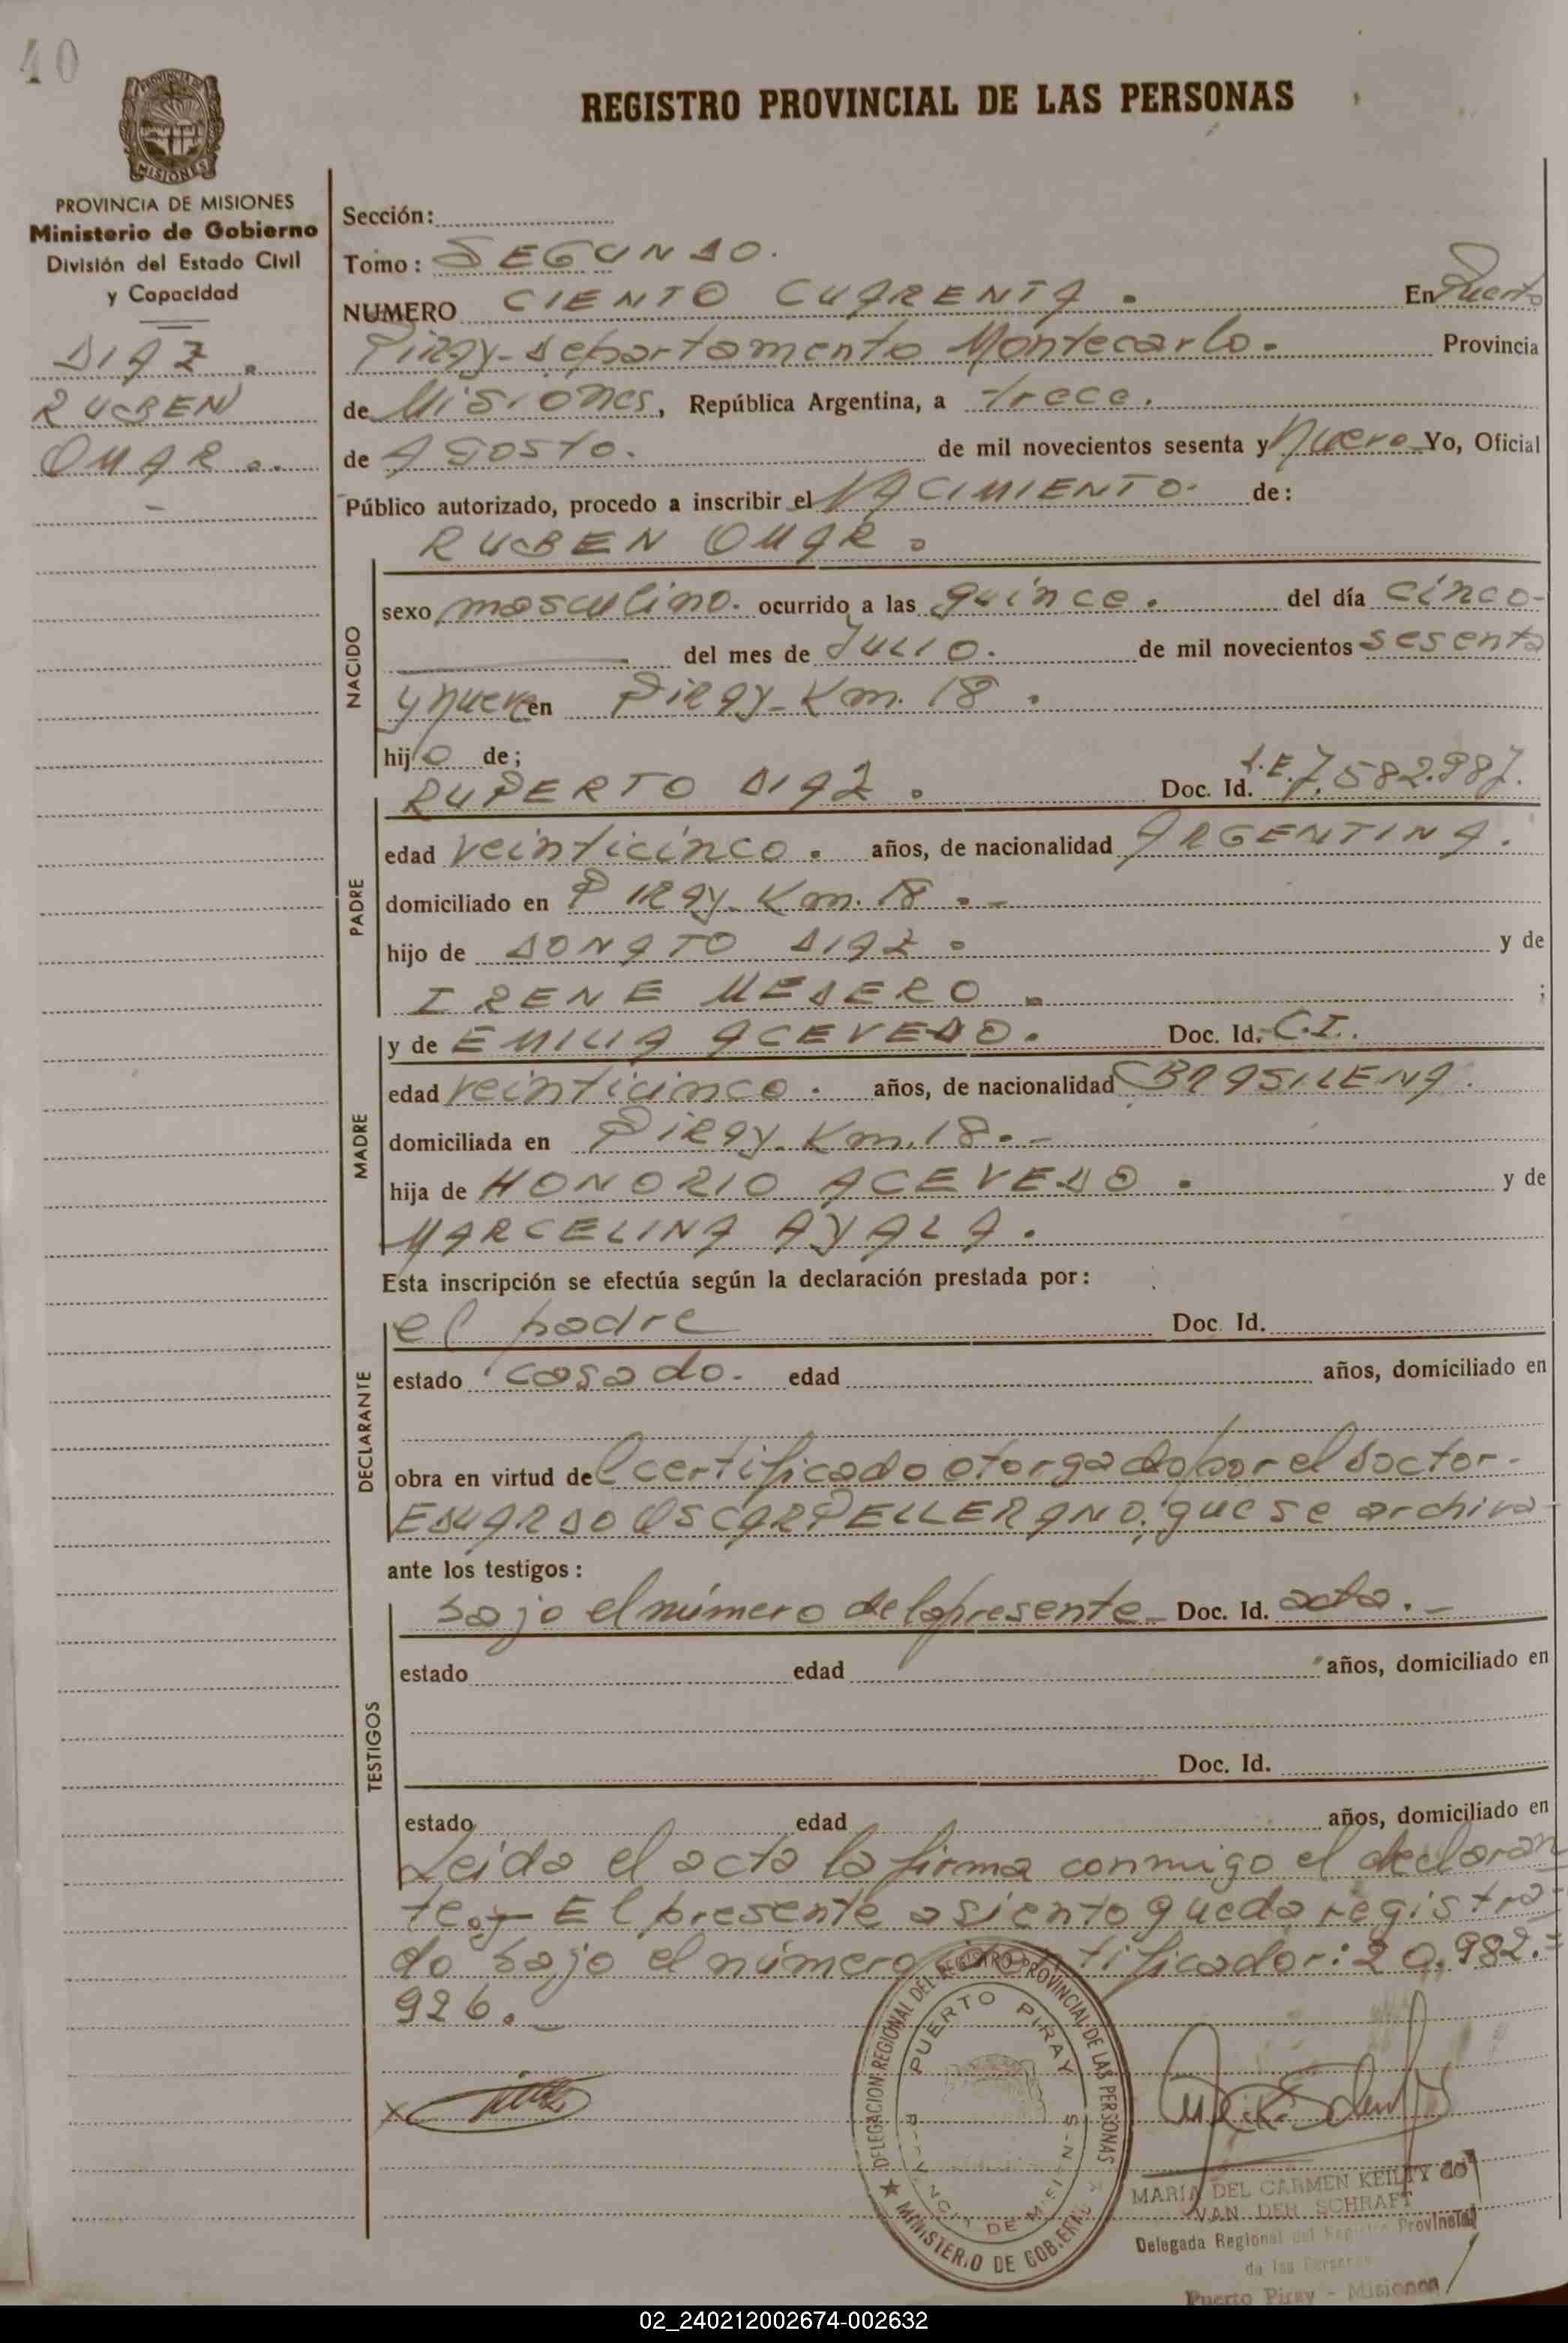 40
PROVINCIA DE MISIONES
REGISTRO PROVINCIAL DE LAS PERSONAS
PROVINCIA DE MISIONES
Ministerio de Gobierno
División del Estado Civil
y Capacidad
DIAZ.
RUBEN
OMAR..
Sección:
Tomo: SEGUNDO.
NUMERO CIENTO CUARENTA. En Puerto
Piray- Departamento Montecarlo. Provincia
de Misiones, República Argentina, a trece.
de AGOSTO. de mil novecientos sesenta y nueve Yo, Oficial
Público autorizado, procedo a inscribir el NACIMIENTO. de:
RUBEN OMAR.
NACIDO
sexo masculino. ocurrido a las quince. del día cinco-
del mes de JULIO. de mil novecientos sesenta
y nueve en PIRAY- Km. 18.
hijo de;
PADRE
RUPERTO DIAZ. Doc. Id. L.E. 7.582.987.
edad veinticinco. años, de nacionalidad ARGENTINA.
domiciliado en PIRAY- Km. 18.-
hijo de DONATO DIAZ. y de
IRENE MEDERO. ;
MADRE
y de EMILIA ACEVEDO. Doc. Id. C.I.
edad veinticinco. años, de nacionalidad BRASILENA.
domiciliada en PIRAY- Km. 18.-
hija de HONORIO ACEVEDO. y de
MARCELINA AYALA.
Esta inscripción se efectúa según la declaración prestada por:
DECLARANTE
el padre Doc. Id.
estado casado. edad años, domiciliado en
obra en virtud del certificado otorgado por el Doctor-
EDUARDO OSCAR PELLERANO, que se archiva
ante los testigos:
TESTIGOS
bajo el número de la presente- Doc. Id. acta.-
estado edad años, domiciliado en
Doc. Id.
estado edad años, domiciliado en
Leida el acta la firma conmigo el declaran
te.- El presente asiento queda registra-
do bajo el número identificador: 20.982.=
926.-
DELEGACION REGIONAL DEL REGISTRO PROVINCIAL DE LAS PERSONAS
PUERTO PIRAY
PROVINCIA DE MISIONES
MINISTERIO DE GOBIERNO
MARIA DEL CARMEN KEILTY de
VAN DER SCHRAFT
Delegada Regional del Registro Provincial
de las Personas
Puerto Piray - Misiones
02_240212002674-002632